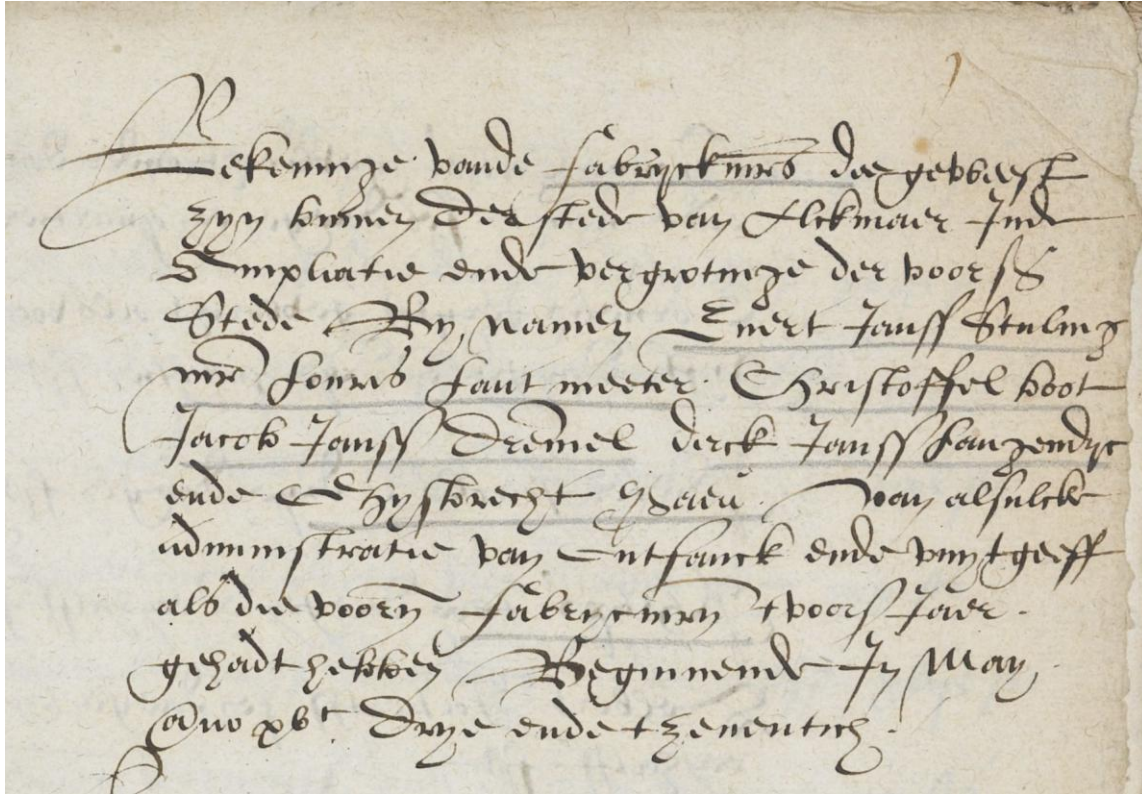 Rekeninge vande fabryckmrs die geweest
zyn binnen der stede van Alckmaer Inde
Ampliatie ende vergrotinge der voors
Stede By Namen Evert Janss Stuling
mr Louris Lant meeter Christoffel boot
Jacob Janss Dremel dirck Janss Langendyc
ende Ghysbrecht van alsulcke
administratie van Ontfanck ende vuytgeeff
als die voorn fabrycmrn tvoors Jaer
gehadt hebben Beginnende In May
Anno xvc Drye ende tzeventich